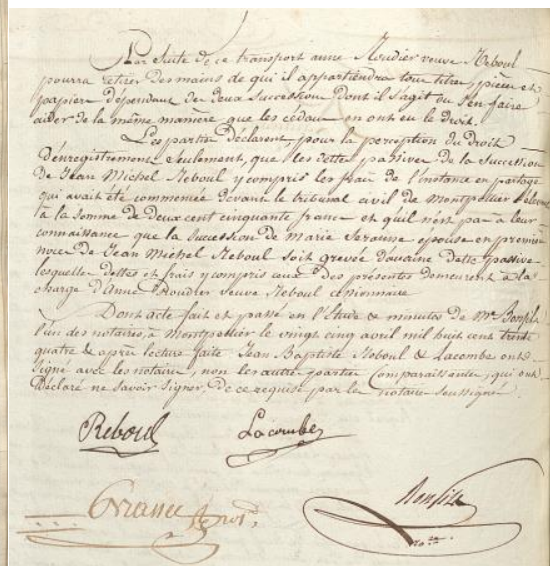 Par suite de ce transport anne Roudier veuve Reboul
pourra retirer des mains de qui il appartiendra tous titres, pièces et
papiers dépendant des deux succession dont il s'agit ou s'en faire
aider de la même manière que les cédans en ont eu le droit.
Les parties déclarent, pour la perception du droit
d'enregistrement seulement, que les dettes passives de la succession
de Jean Michel Reboul y compris les frais de l'instance en partage
qui avait été commencée devant le tribunal civil de Montpellier s'élèvent
à la somme de deux cent cinquante francs et qu'il n'est pas à leur
connaissance que la succession de Marie Seranne épouse en première
noce de Jean Michel Reboul soit grevée d'aucune dette passive
lesquelles dettes et frais y compris ceux des présentes demeurent à la
charge d'Anne Roudier veuve Reboul cessionnaire
Dont acte fait et passé en l'étude & minutes de Mr. Bonfils
l'un des notaires, à Montpellier le vingt cinq avril mil huit cent trente
quatre & après lecture faite Jean Baptiste Reboul & Lacombe ont
signé avec les notaires, non les autres parties comparaissantes, qui ont
déclaré ne savoir signer, de ce requise par le notaire soussigné.
Reboul Lacombe
Bonfils